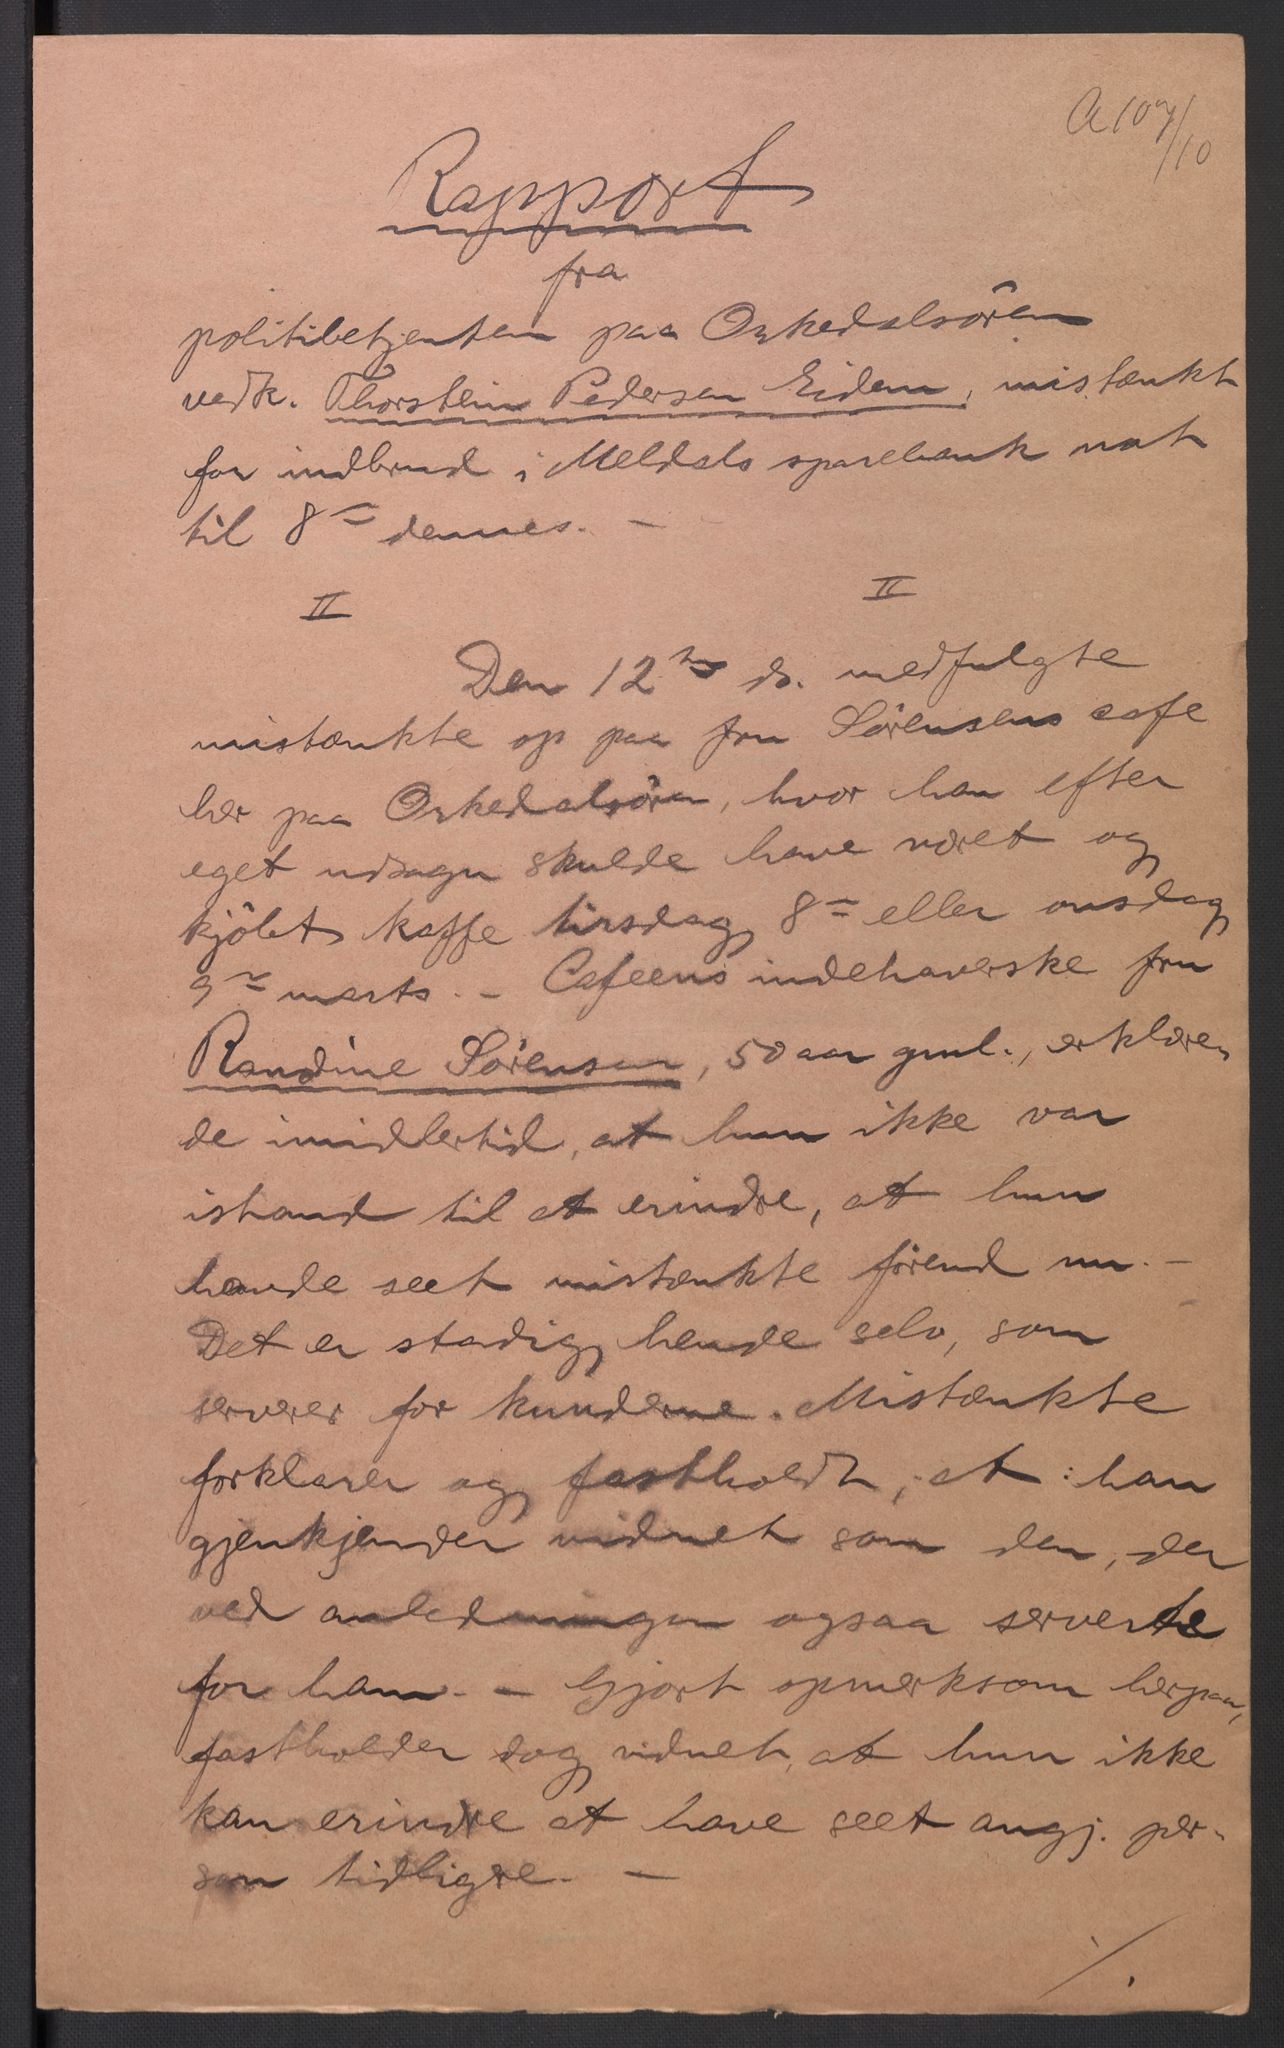 A 107/10
Rapport
fra
politibetjenten paa Orkedalsören
vedk. Thorstein Pedersen Eidem, mistænkt
for indbrud i Meldals sparebank nat
til 8de dennes. -
II II
Den 12te ds. medfulgte
mistænkte op paa fru Sörensens cafe
her paa Orkedalsören, hvor han efter
eget udsagn skulde have været og
kjöbt kaffe tirsdag 8de eller onsdag
9de marts. - Cafeens indehaverske fru
Randine Sörensen, 50 aar gml., erklære-
de imidlertid, at hun ikke var
istand til at erindre, at hun
havde seet mistænkte förend nu. -
Det er stadig hende selv, som
serverer for kunderne. Mistænkte
forklarer og fastholdt, at han
gjenkjender vidnet som den, der
ved anledningen ogsaa serverte
for ham. - Gjort opmerksom herpaa,
fastholder dog vidnet, at hun ikke
kan erindre at have seet angj. per-
son tidligere. -
./.